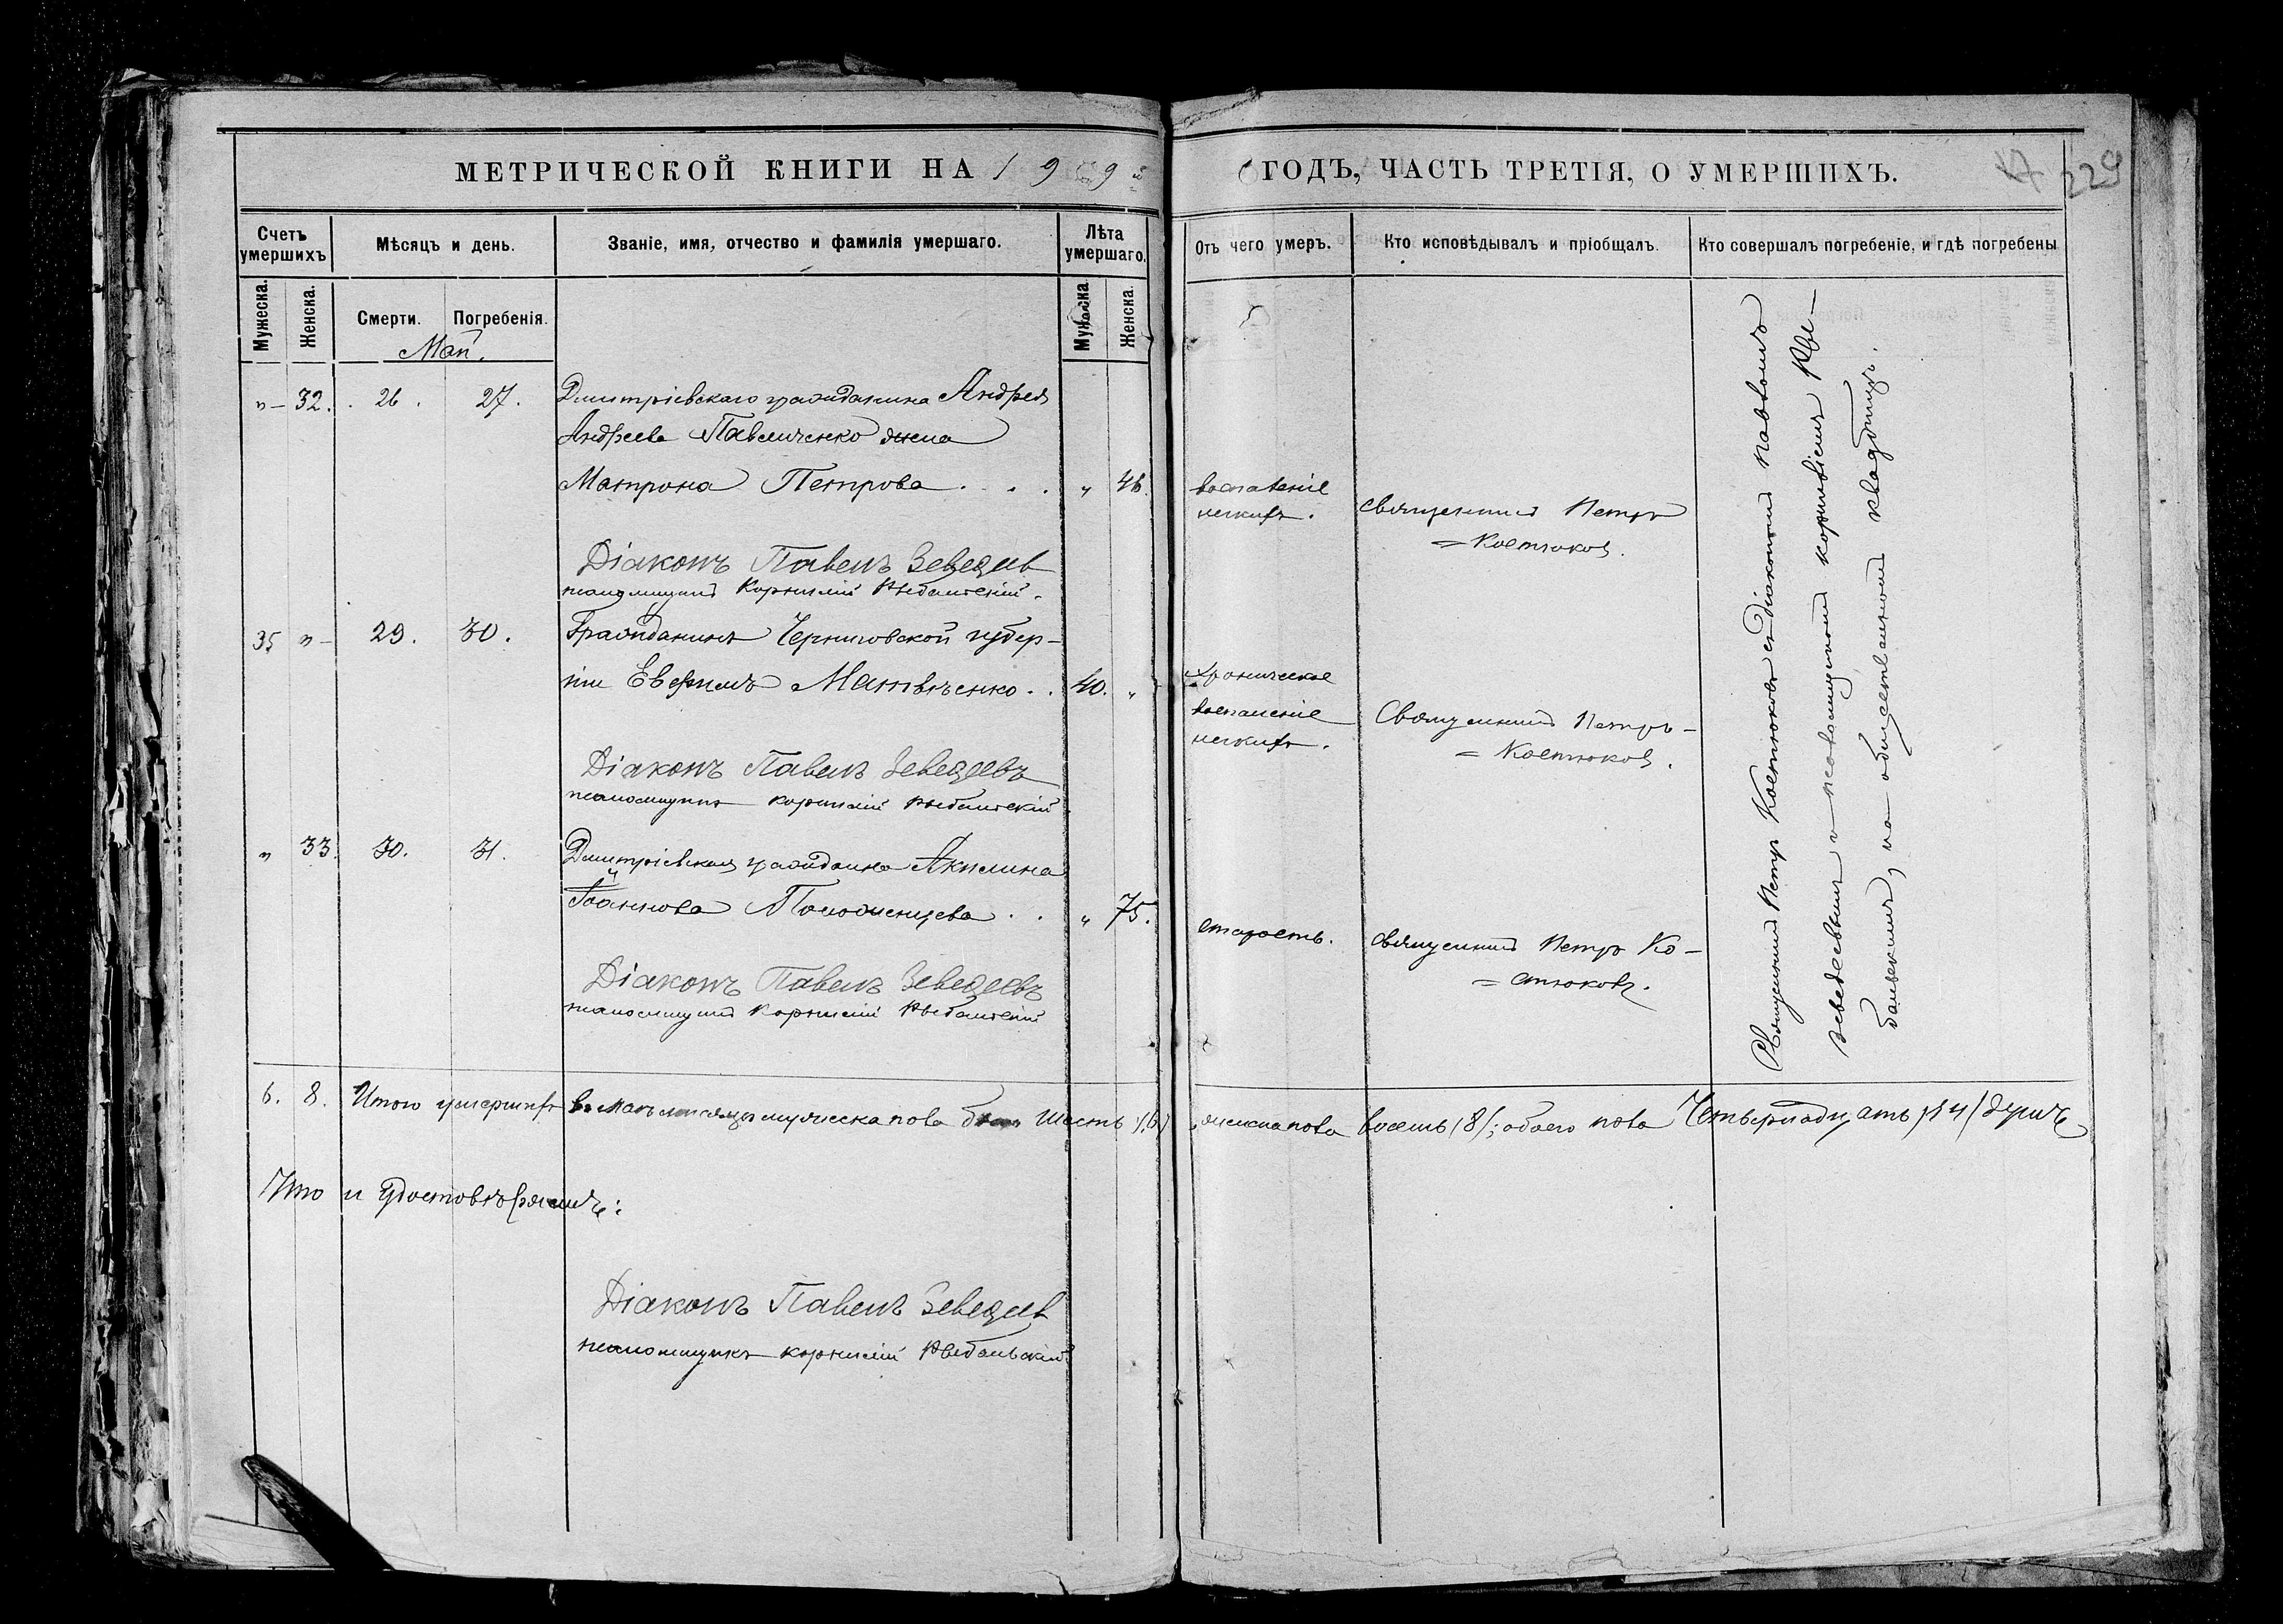 МЕТРИЧЕСКОЙ КНИГИ НА 19 9 ГОДЪ, ЧАСТЬ ТРЕТІЯ, О УМЕРШИХЪ.
229
Счетъ умершихъ
Мѣсяцъ и день.
Званіе, имя, отчество и фамилія умершаго.
Лѣта умершаго.
Отъ чего умеръ.
Кто исповѣдывалъ и пріобщалъ.
Кто совершалъ погребеніе, и гдѣ погребены
Мужеска.
Женска.
Смерти.
Погребенія.
Мужеска.
Женска.
Май.
"– 32. 26. 27. Дмитріевскаго гражданина Андрея
Андреева Павличенко жена
Матрона Петрова . . . " 46.
воспаленіе
легкихъ.
Священникъ Петръ
= Костюковъ.
Діаконъ Павелъ Зеведеев
псаломщикъ Корнилій Рыбальскій.
35 "– 29. 30. Гражданинъ Черниговской губер–
ніи Евфимъ Матвѣенко . . 40. "
хроническое
воспаленіе
легкихъ.
Священникъ Петръ –
= Костюковъ.
Діаконъ Павелъ Зеведеевъ
псаломщикъ Корнилій Рыбальскій
" 33. 30. 31. Дмитріевская гражданка Акилина
Іоаннова Положенцева . . " 75.
старость.
Священникъ Петръ Ко–
= стюковъ.
Діаконъ Павелъ Зеведеевъ
псаломщикъ Корнилій Рыбальскій
Священникъ Петръ Костюковъ съ діакономъ Павломъ
Зеведеевымъ и псаломщикомъ Корниліемъ Ры–
бальскимъ, на общественномъ кладбищѣ.
6. 8. Итого умершихъ въ маѣ мѣсяцѣ мужеска пола шесть /6/ женска пола восемь /8/; обоего пола Четырнадцать /14/ душъ
Что и удостовѣряемъ:
Діаконъ Павелъ Зеведеев
псаломщикъ Корнилій Рыбальскій